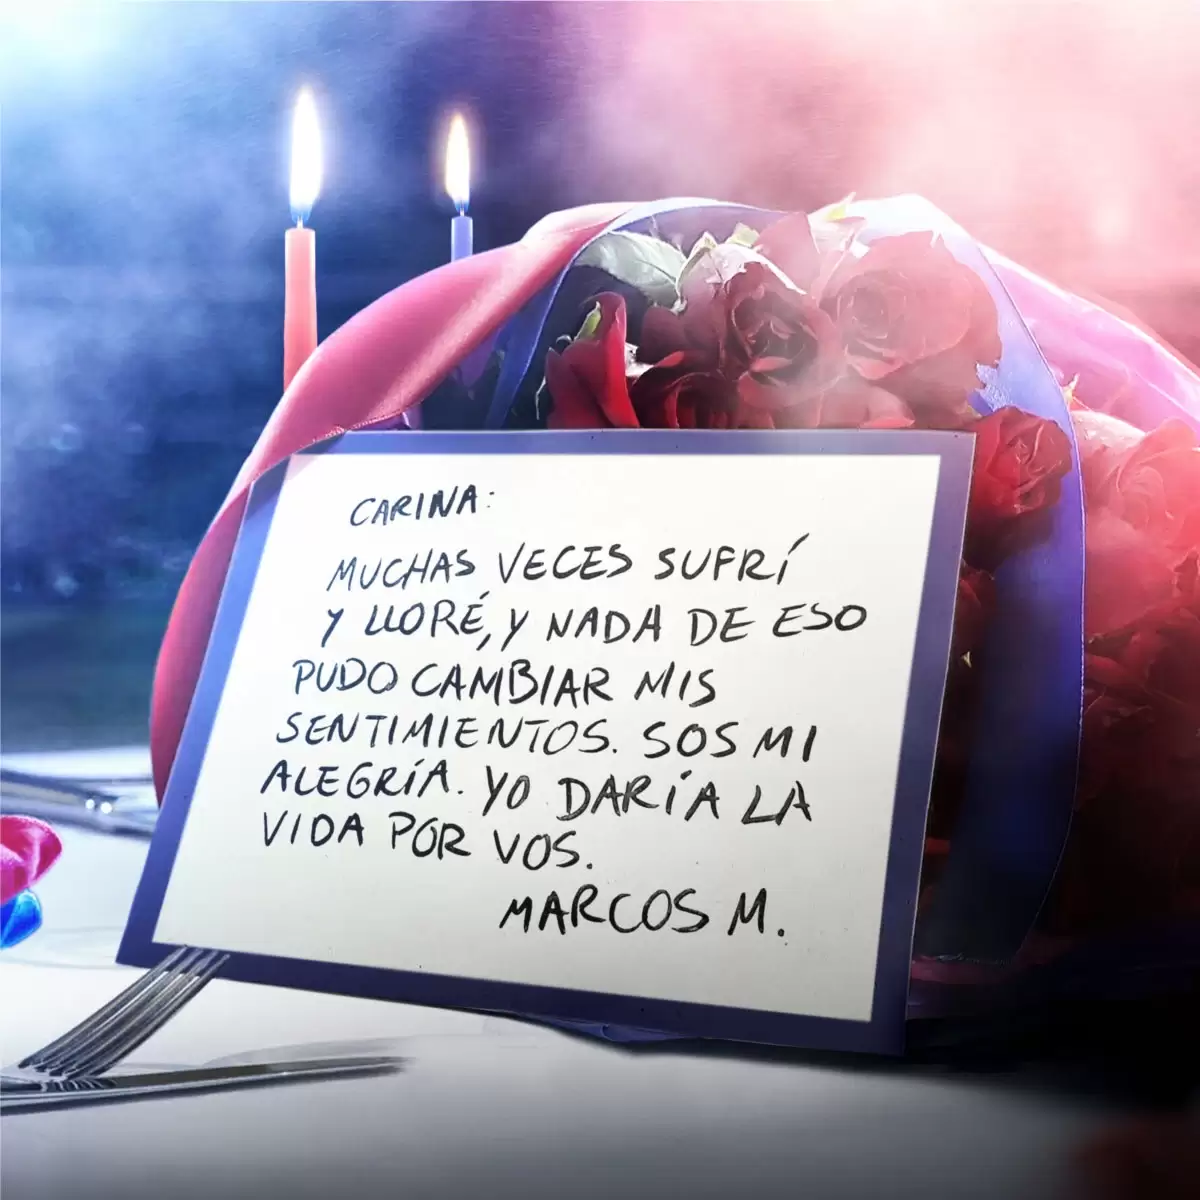 CARINA:
MUCHAS VECES SUFRÍ
Y LLORÉ, Y NADA DE ESO
PUDO CAMBIAR MIS
SENTIMIENTOS. SOS MI
ALEGRÍA. YO DARÍA LA
VIDA POR VOS.
MARCOS M.